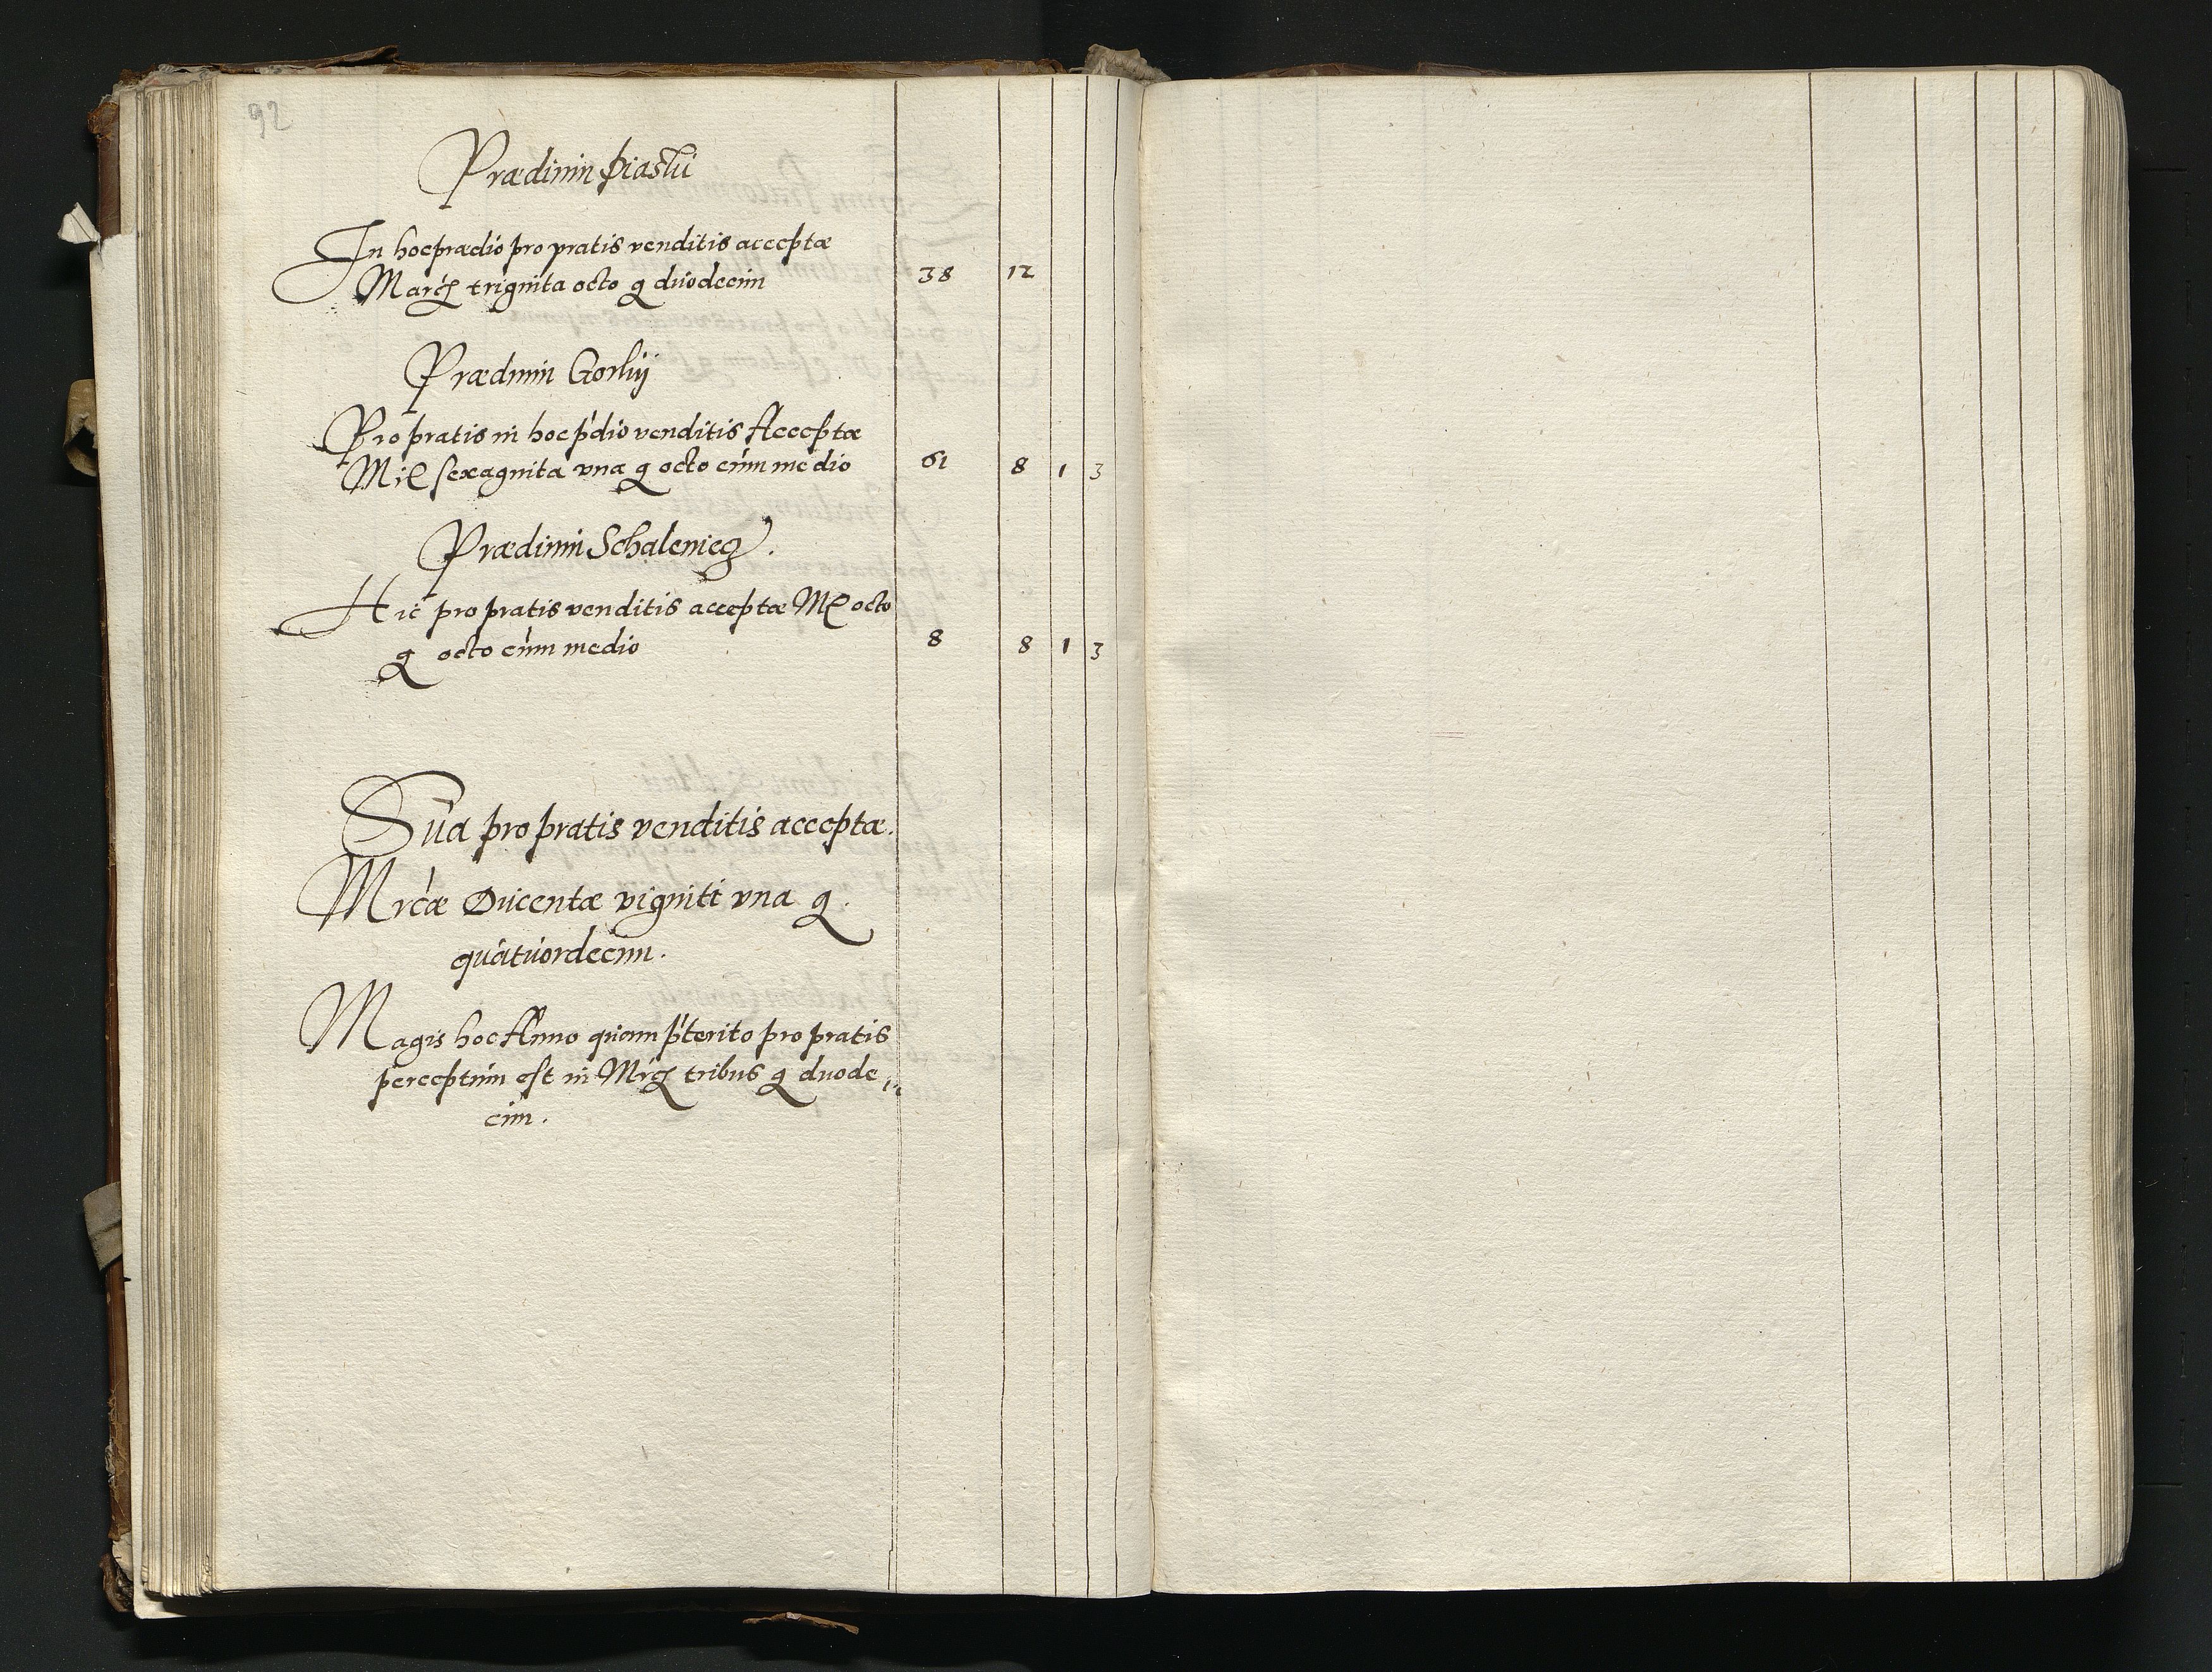 92
Prædium piastü
In hoc prædio pro pratis venditis acceptæ
Marcę triginta octo g duodecim 38 12
Prædium Gorlij
Pro pratis in hoc pdio venditis Acceptæ
sexaginta vna g octo cum medio 61 8 1 3
Prædium
Hic pro pratis venditis acceptæ octo
g octo cum medio 8 8 1 3
Sūa pro pratis venditis acceptæ.
Mrcæ Ducentæ viginti vna g.
quatuordecim.
Magis hoc Anno quam pterito pro pratis
perceptum est in Mrcę tribus g duode
cim.